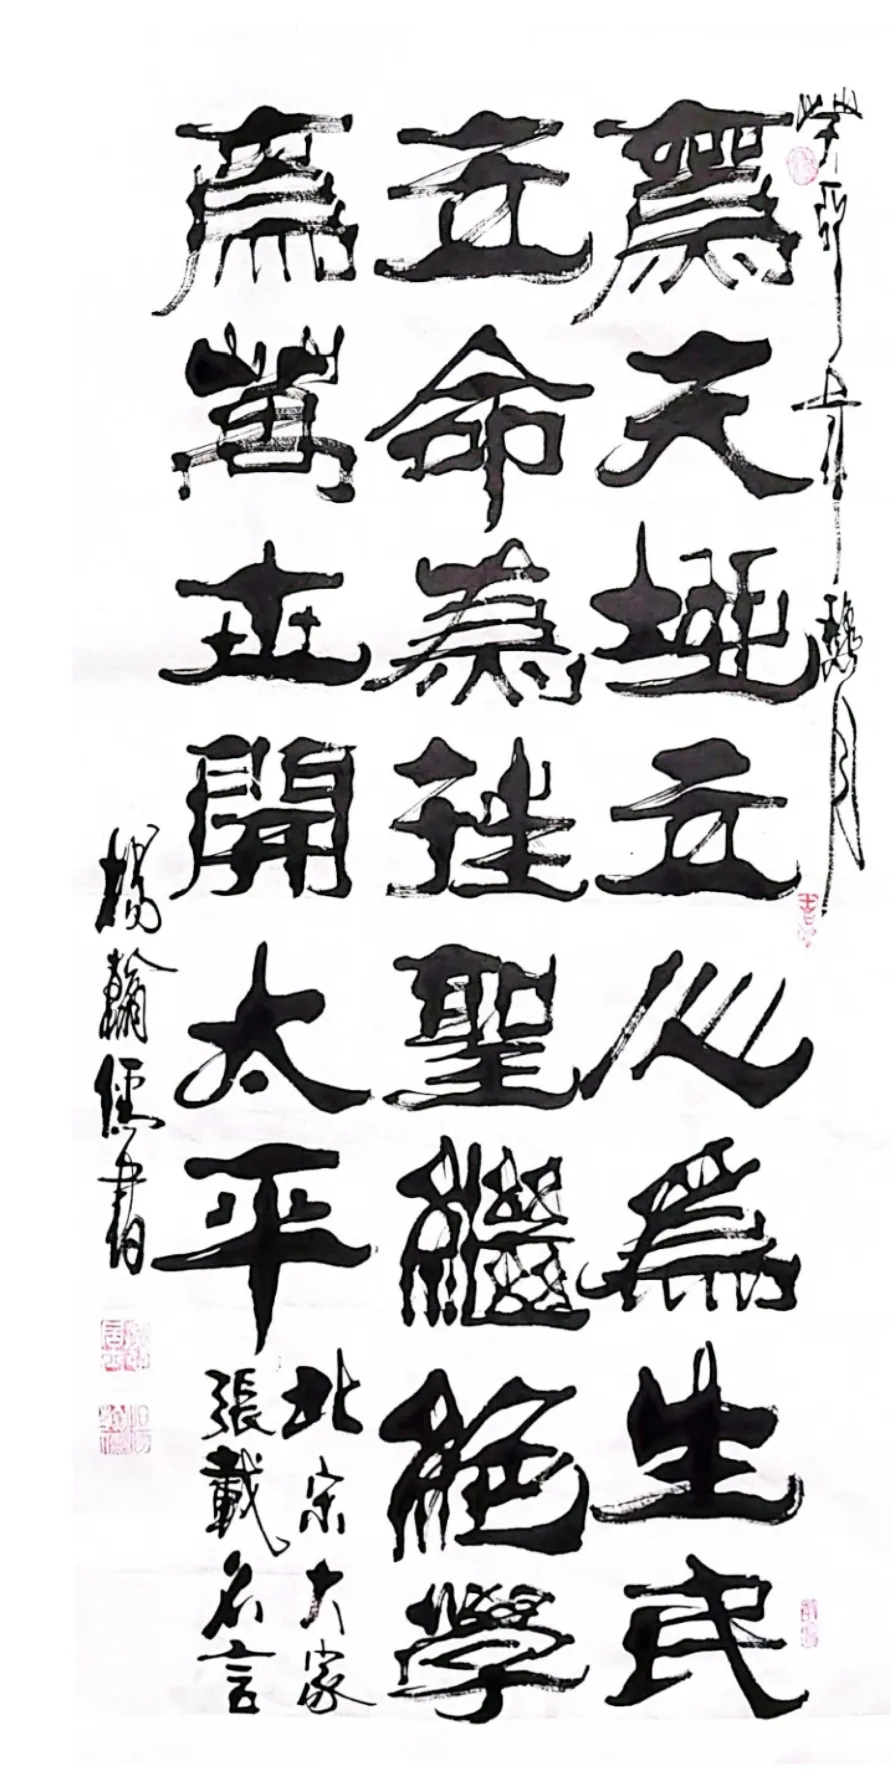 爲天地立心爲生民
立命爲往聖繼絕學
爲萬世開太平
北宋大家
張載名言
楊翰儒書